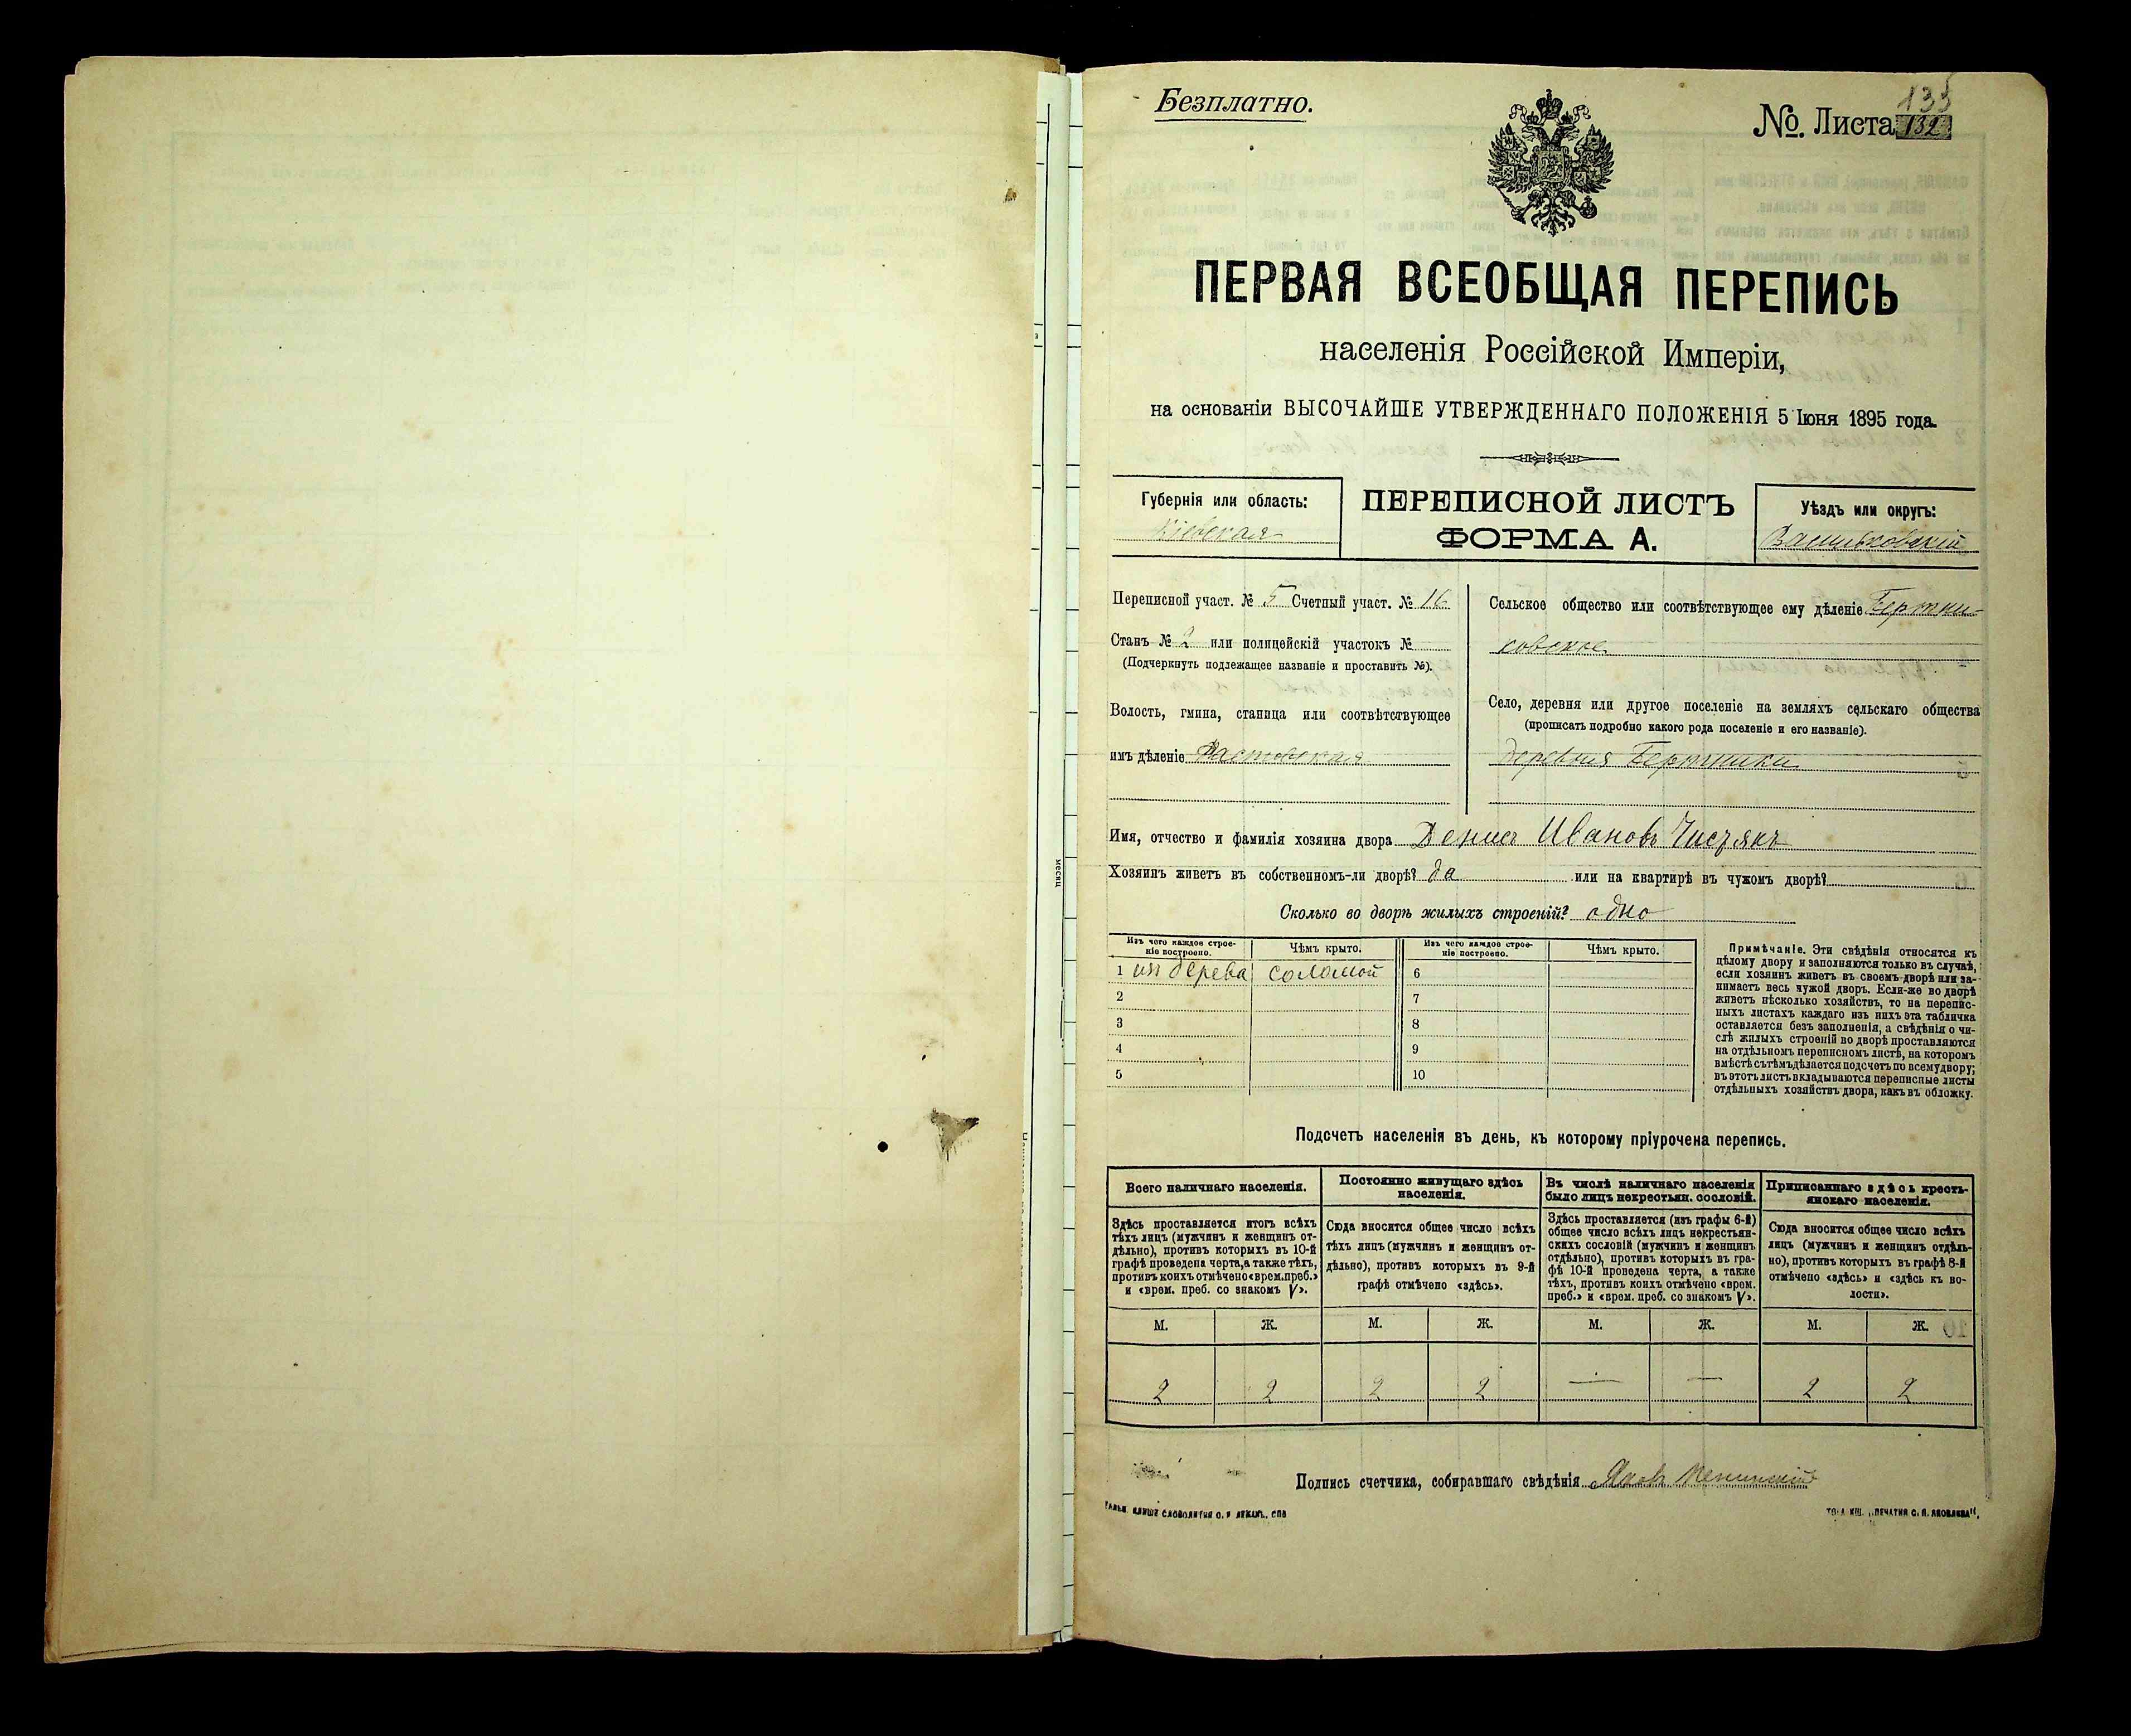 Безплатно.
№ Листа 132
133
ПЕРВАЯ ВСЕОБЩАЯ ПЕРЕПИСЬ
населенія Россійской Имперіи,
на основаніи ВЫСОЧАЙШЕ УТВЕРЖДЕННАГО ПОЛОЖЕНІЯ 5 Іюня 1895 года.
Губернія или область:
Кіевская
ПЕРЕПИСНОЙ ЛИСТЪ
ФОРМА А.
Уѣздъ или округъ:
Васильковскій
Переписной участ. № 5 Счетный участ. № 16
Станъ № 2 или полицейскій участокъ №
(Подчеркнуть подлежащее названіе и проставить №).
Волость, гмина, станица или соотвѣтствующее
имъ дѣленіе Фастовская
Сельское общество или соотвѣтствующее ему дѣленіе Бертни-
ковское
Село, деревня или другое поселеніе на земляхъ сельскаго общества
(прописать подробно какого рода поселеніе и его названіе).
деревня Бертники
Имя, отчество и фамилія хозяина двора Денисъ Ивановъ
Хозяинъ живетъ въ собственномъ-ли дворѣ? да или на квартирѣ въ чужомъ дворѣ?
Сколько во дворѣ жилыхъ строеній? одно
Изъ чего каждое строе-
ніе построено.
Чѣмъ крыто.
Изъ чего каждое строе-
ніе построено.
Чѣмъ крыто.
1 изъ дерева соломой 6
2 7
3 8
4 9
5 10
Примѣчаніе. Эти свѣдѣнія относятся къ
цѣлому двору и заполняются только въ случаѣ,
если хозяинъ живетъ въ своемъ дворѣ или за-
нимаетъ весь чужой дворъ. Если-же во дворѣ
живетъ нѣсколько хозяйствъ, то на перепис-
ныхъ листахъ каждаго изъ нихъ эта табличка
оставляется безъ заполненія, а свѣдѣнія о чи-
слѣ жилыхъ строеній во дворѣ проставляются
на отдѣльномъ переписномъ листѣ, на которомъ
вмѣстѣ съ тѣмъ дѣлается подсчетъ по всему двору;
въ этотъ листъ вкладываются переписные листы
отдѣльныхъ хозяйствъ двора, какъ въ обложку.
Подсчетъ населенія въ день, къ которому пріурочена перепись.
Всего наличнаго населенія.
Постоянно живущаго здѣсь
населенія.
Въ числѣ наличнаго населенія
было лицъ некрестьян. сословій.
Приписаннаго здѣсь кресть-
янскаго населенія.
Здѣсь проставляется итогъ всѣхъ
тѣхъ лицъ (мужчинъ и женщинъ от-
дѣльно), противъ которыхъ въ 10-й
графѣ проведена черта, а также тѣхъ,
противъ коихъ отмѣчено «врем. преб.»
и «врем. преб. со знакомъ V».
Сюда вносится общее число всѣхъ
тѣхъ лицъ (мужчинъ и женщинъ от-
дѣльно), противъ которыхъ въ 9-й
графѣ отмѣчено «здѣсь».
Здѣсь проставляется (изъ графы 6-й)
общее число всѣхъ лицъ некрестьян-
скихъ сословій (мужчинъ и женщинъ
отдѣльно), противъ которыхъ въ гра-
фѣ 10-й проведена черта, а также
тѣхъ, противъ коихъ отмѣчено «врем.
преб.» и «врем. преб. со знакомъ V».
Сюда вносится общее число всѣхъ
лицъ (мужчинъ и женщинъ отдѣль-
но), противъ которыхъ въ графѣ 8-й
отмѣчено «здѣсь» и «здѣсь къ во-
лости».
М. Ж. М. Ж. М. Ж. М. Ж.
2 2 2 2 — — 2 2
Подпись счетчика, собиравшаго свѣдѣнія Яковъ